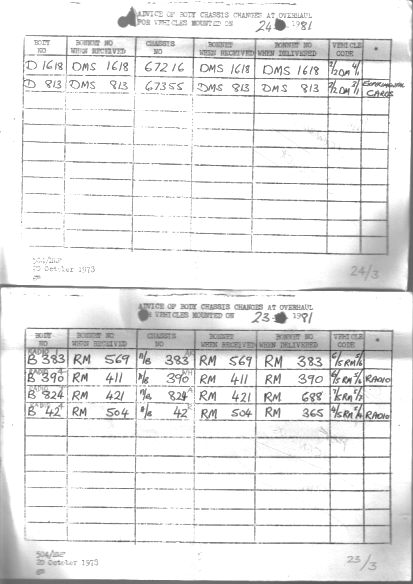 ADVICE OF BODY CHASSIS CHANGES AT OVERHAUL
FOR VEHICLES MOUNTED ON 24 1981
BODY NO BONNET NO WHEN RECEIVED CHASSIS NO BONNET WHEN RECEIVED BONNET NO WHEN DELIVERED VEHICLE CODE *
D 1618 DMS 1618 67216 DMS 1618 DMS 1618 2/2DM 4/1
D 813 DMS 813 67355 DMS 813 DMS 813 7/2DM 3/1 EXPERIMENTAL CARDS
20 October 1973
24/3
ADVICE OF BODY CHASSIS CHANGES AT OVERHAUL
VEHICLES MOUNTED ON 23 1981
BODY NO BONNET NO WHEN RECEIVED CHASSIS NO BONNET WHEN RECEIVED BONNET NO WHEN DELIVERED VEHICLE CODE *
B 383 RM 569 N/B 383 RM 569 RM 383 6/5RM 5/6
B 390 RM 411 390 RM 411 RM 390 6/5RM 5/6 RADIO
B 824 RM 421 N/B 824 RM 421 RM 688
B 42 RM 504 42 RM 504 RM 365 4/5RM 5/4 RADIO
20 October 1973
23/3